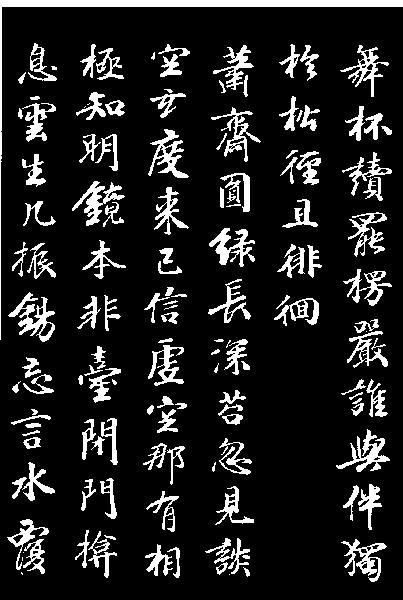 舞杯讀罷楞嚴誰與伴獨
於松徑且徘徊
蕭齋圓綠長深苔忽見談
空玄度來已信虛空那有相
極知明鏡本非臺閉門揜
息雲生几振錫忘言水覆